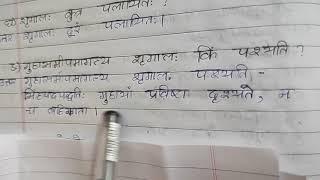 शृगालः कुत्र पलायितः ?
उत्तर शृगालः दूरं पलायितः।
गुहासमीपमागत्य शृगालः किं पश्यति ?
उत्तर गुहासमीपमागत्य शृगालः पश्यति -
सिंहपदपद्धतिः गुहायां प्रविष्टा दृश्यते, न
च बहिरागता।